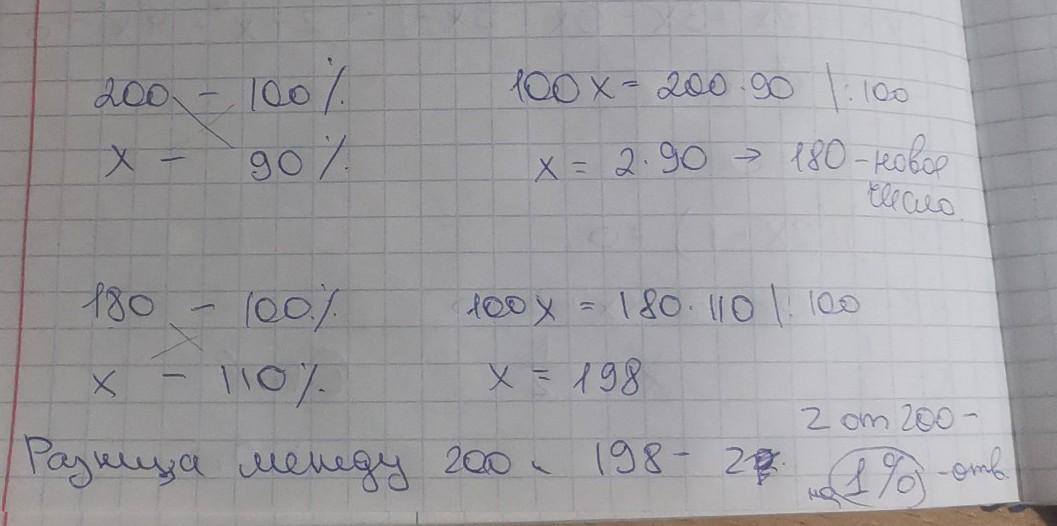 200 - 100%
x - 90%
100x = 200·90 |:100
x = 2·90 → 180 - новое
число.
180 - 100%
x - 110%
100x = 180·110 |:100
x = 198
Разница между 200 и 198 - 2
2 от 200 -
на 1% - отв.